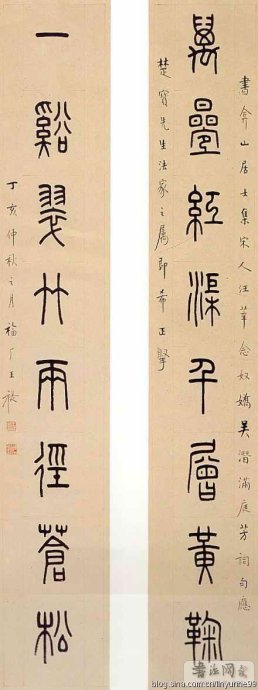 書弇山居士集宋人汪莘念奴嬌吳潛滿庭芳詞句應
萬疊紅渠千層黃鞠
楚寶先生法家之屬即希正
一谿翠竹兩徑蒼松
丁亥仲秋之月福厂王禔